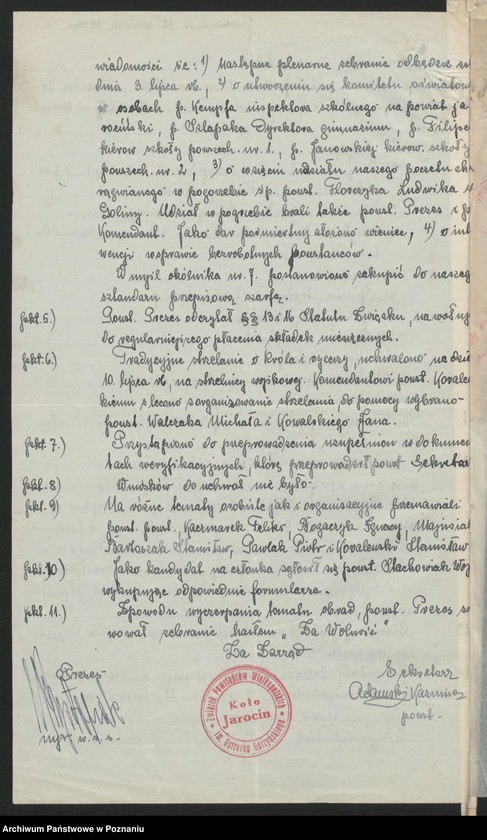 wiadomości że: 1) Następne plenarne zebranie odbędzie si
dnia 3. lipca rb, 2) o utworzeniu się komitetu oświatow
w osobach p. Kempfa inspektora szkolnego na powiat ja
rociński, p. Szlapaka Dyrektora gimnazjum, p. Filipo
kierow szkoły powszech. nr. 1. p. Janowskiej kierow. szkoły
powszech. nr. 2, 3) o wzięciu udziału naszego pocztu
w pogrzebie śp. powst. Floryszka Ludwika z
Goliny. Udział w pogrzebie brali także powst. Prezes i p
Komendant. Jako dar pośmiertny złożono wieniec, 4) o int
wencji w sprawie bezrobotnych Powstańców.
W myśl okólnika nr. 7. postanowiono zakupić do naszeg
sztandaru przepisową szarfę.
pkt. 5.) Powst. Prezes odczytał §§ 13 i 16 Statutu Związku, nawołuj
do regularniejszego płacenia składek miesięcznych.
pkt. 6.) Tradycyjne strzelanie o króla i rycerzy, uchwalono na dzie
10. lipca rb, na strzelnicy wojskowej. Komendantowi powst. Kowale
kiemu zlecono zorganizowanie strzelania, do pomocy wybrano-
powst. Walczaka Michała i Kowalskiego Jana.
pkt. 7.) Przystąpiono do przeprowadzenia uzupełnień w dokumen
tach weryfikacyjnych, które przeprowadził powst Sekretar
pkt. 8) Wniosków do uchwał nie było.
pkt. 9) Na różne tematy osobiste jak i organizacyjne przemawiali
powst. powst., Kaczmarek Feliks, Rogaczyk Ignacy,
Bartoszak Stanisław, Pawlak Piotr i Kowalewski Stanisław
pkt. 10) Jako kandydat na członka zgłosił się powst. Stachowiak Woj
wypełniając odpowiednie formularze.
pkt. 11.) Z powodu wyczerpania tematu obrad, powst. Prezes
wował zebranie hasłem „Za Wolność"
Za Zarząd
Prezes
Sekretarz
Adamski Kazimierz
powst.
Związek Powstańców Wielkopolskich
Koło
Jarocin
im. Ostroróg Gorzyńskiego
Archiwum Państwowe w Poznaniu